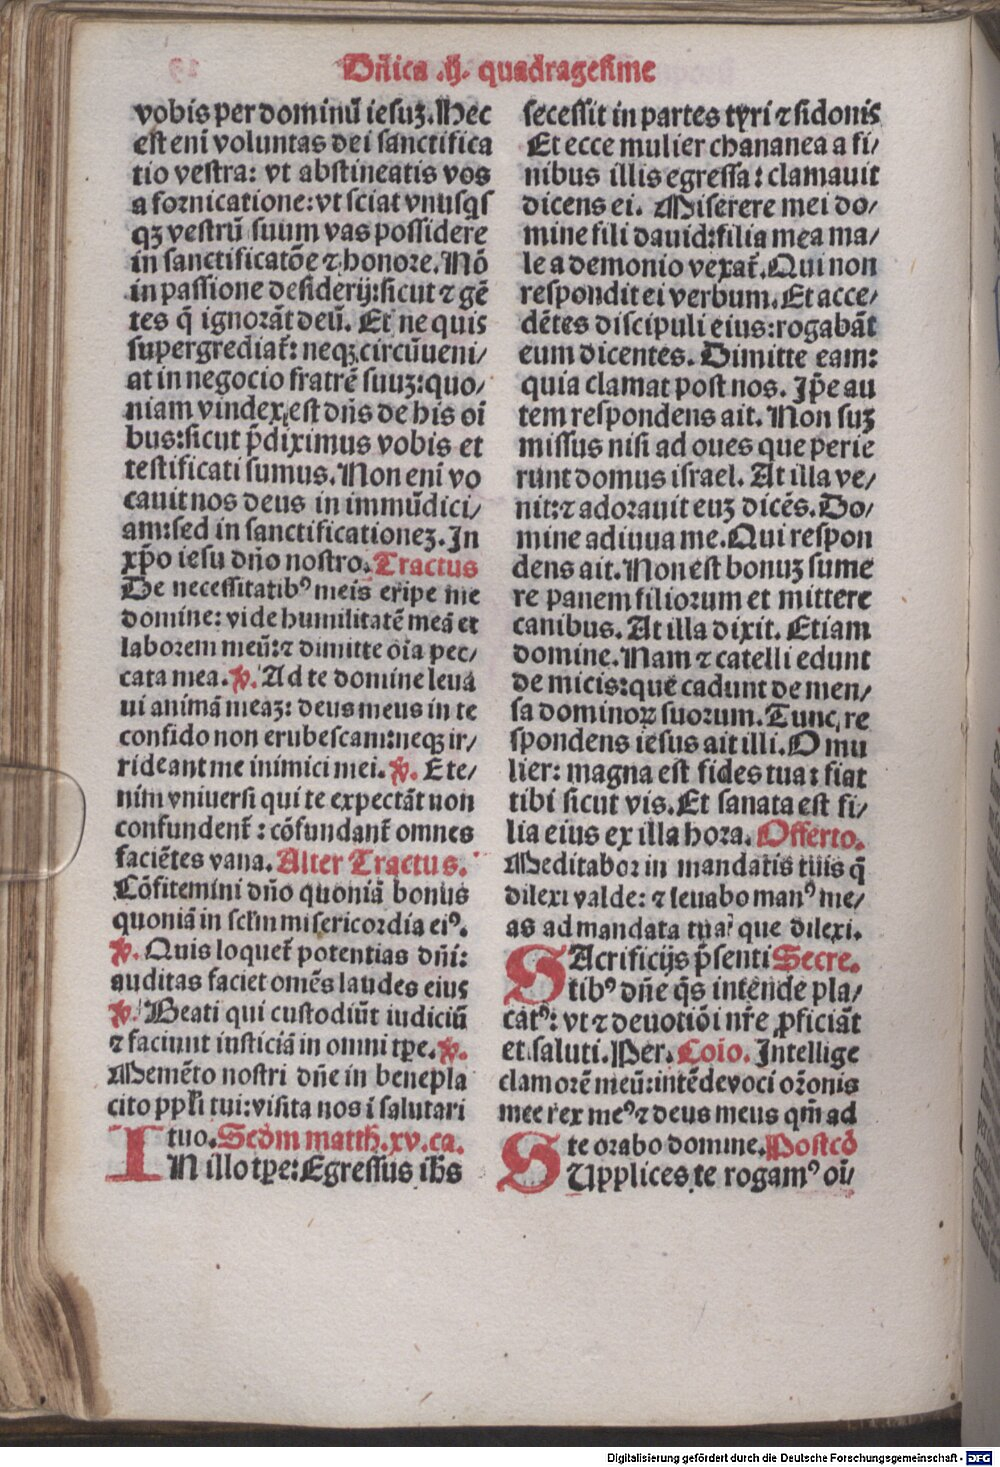 Dn̄ica .ij. quadragesime
vobis per dominū iesuȝ. Hec
est eni̅ voluntas dei sanctifica
tio vestra: vt abstineatis vos
a fornicatione: vt sciat vnusqs
qȝ vestrū suum vas possidere
in sanctificatōe ⁊ honore. Nō
in passione desiderij: sicut ⁊ gē
tes q̄ ignorāt deū. Et ne quis
supergrediat̄: neqȝ circūueni/
at in negocio fratrē suuȝ: quo/
niam vindex est dn̄s de his oī
bus: sicut p̄diximus vobis et
testificati sumus. Non enī vo
cauit nos deus in immūdici/
am: sed in sanctificationeȝ. In
xp̄o iesu dn̄o nostro. Tractus
De necessitatibꝰ meis eripe me
domine: vide humilitatē meā et
laborem meū: ⁊ dimitte oīa pec/
cata mea. ℣. Ad te domine leua
ui animā meaȝ: deus meus in te
confido non erubescam: neqȝ ir/
rideant me inimici mei. ℣. Ete/
nim vniuersi qui te expectāt non
confundent̄: cōfundant̄ omnes
faciētes vana. Alter Tractus.
Cōfitemini dn̄o quoniā bonus
quoniā in sclm̄ misericordia eiꝰ.
℣. Quis loquet̄ potentias dn̄i:
auditas faciet omēs laudes eius
℣. Beati qui custodiūt iudiciū
⁊ faciunt iusticiā in omni tpe. ℣.
Memēto nostri dn̄e in benepla
cito ppl̄i tui: visita nos ī salutari
tuo. Scd̄m matth. xv. ca.
IN illo tpe: Egressus ih̄s
secessit in partes tyri ⁊ sidonis
Et ecce mulier chananea a fi/
nibus illis egressa: clamauit
dicens ei. Miserere mei do/
mine fili dauid: filia mea ma/
le a demonio vexat̄. Qui non
respondit ei verbum. Et acce/
dētes discipuli eius: rogabāt
eum dicentes. Dimitte eam:
quia clamat post nos. Ip̄e au
tem respondens ait. Non suȝ
missus nisi ad oues que perie
runt domus israel. At illa ve/
nit: ⁊ adorauit euȝ dicēs. Do/
mine adiuua me. Qui respon
dens ait. Non est bonuȝ sume
re panem filiorum et mittere
canibus. At illa dixit. Etiam
domine. Nam ⁊ catelli edunt
de micis: que cadunt de men/
sa dominoꝝ suorum. Tunc re
spondens iesus ait illi. O mu
lier: magna est fides tua: fiat
tibi sicut vis. Et sanata est fi/
lia eius ex illa hora. Offerto.
Meditabor in mandatis tuis q̄
dilexi valde: ⁊ leuabo manꝰ me/
as ad mandata tua que dilexi.
SAcrificijs p̄senti Secre.
tibꝰ dn̄e q̄s intēnde pla/
catꝰ: vt ⁊ deuotiōi nr̄e ꝓficiāt
et saluti. Per. Coīo. Intellige
clamorē meū: intēde voci or̄onis
mee rex meꝰ ⁊ deus meus qm̄ ad
te orabo domine. Postcō
SUpplices te rogamꝰ oī/
Digitalisierung gefördert durch die Deutsche Forschungsgemeinschaft - DFG